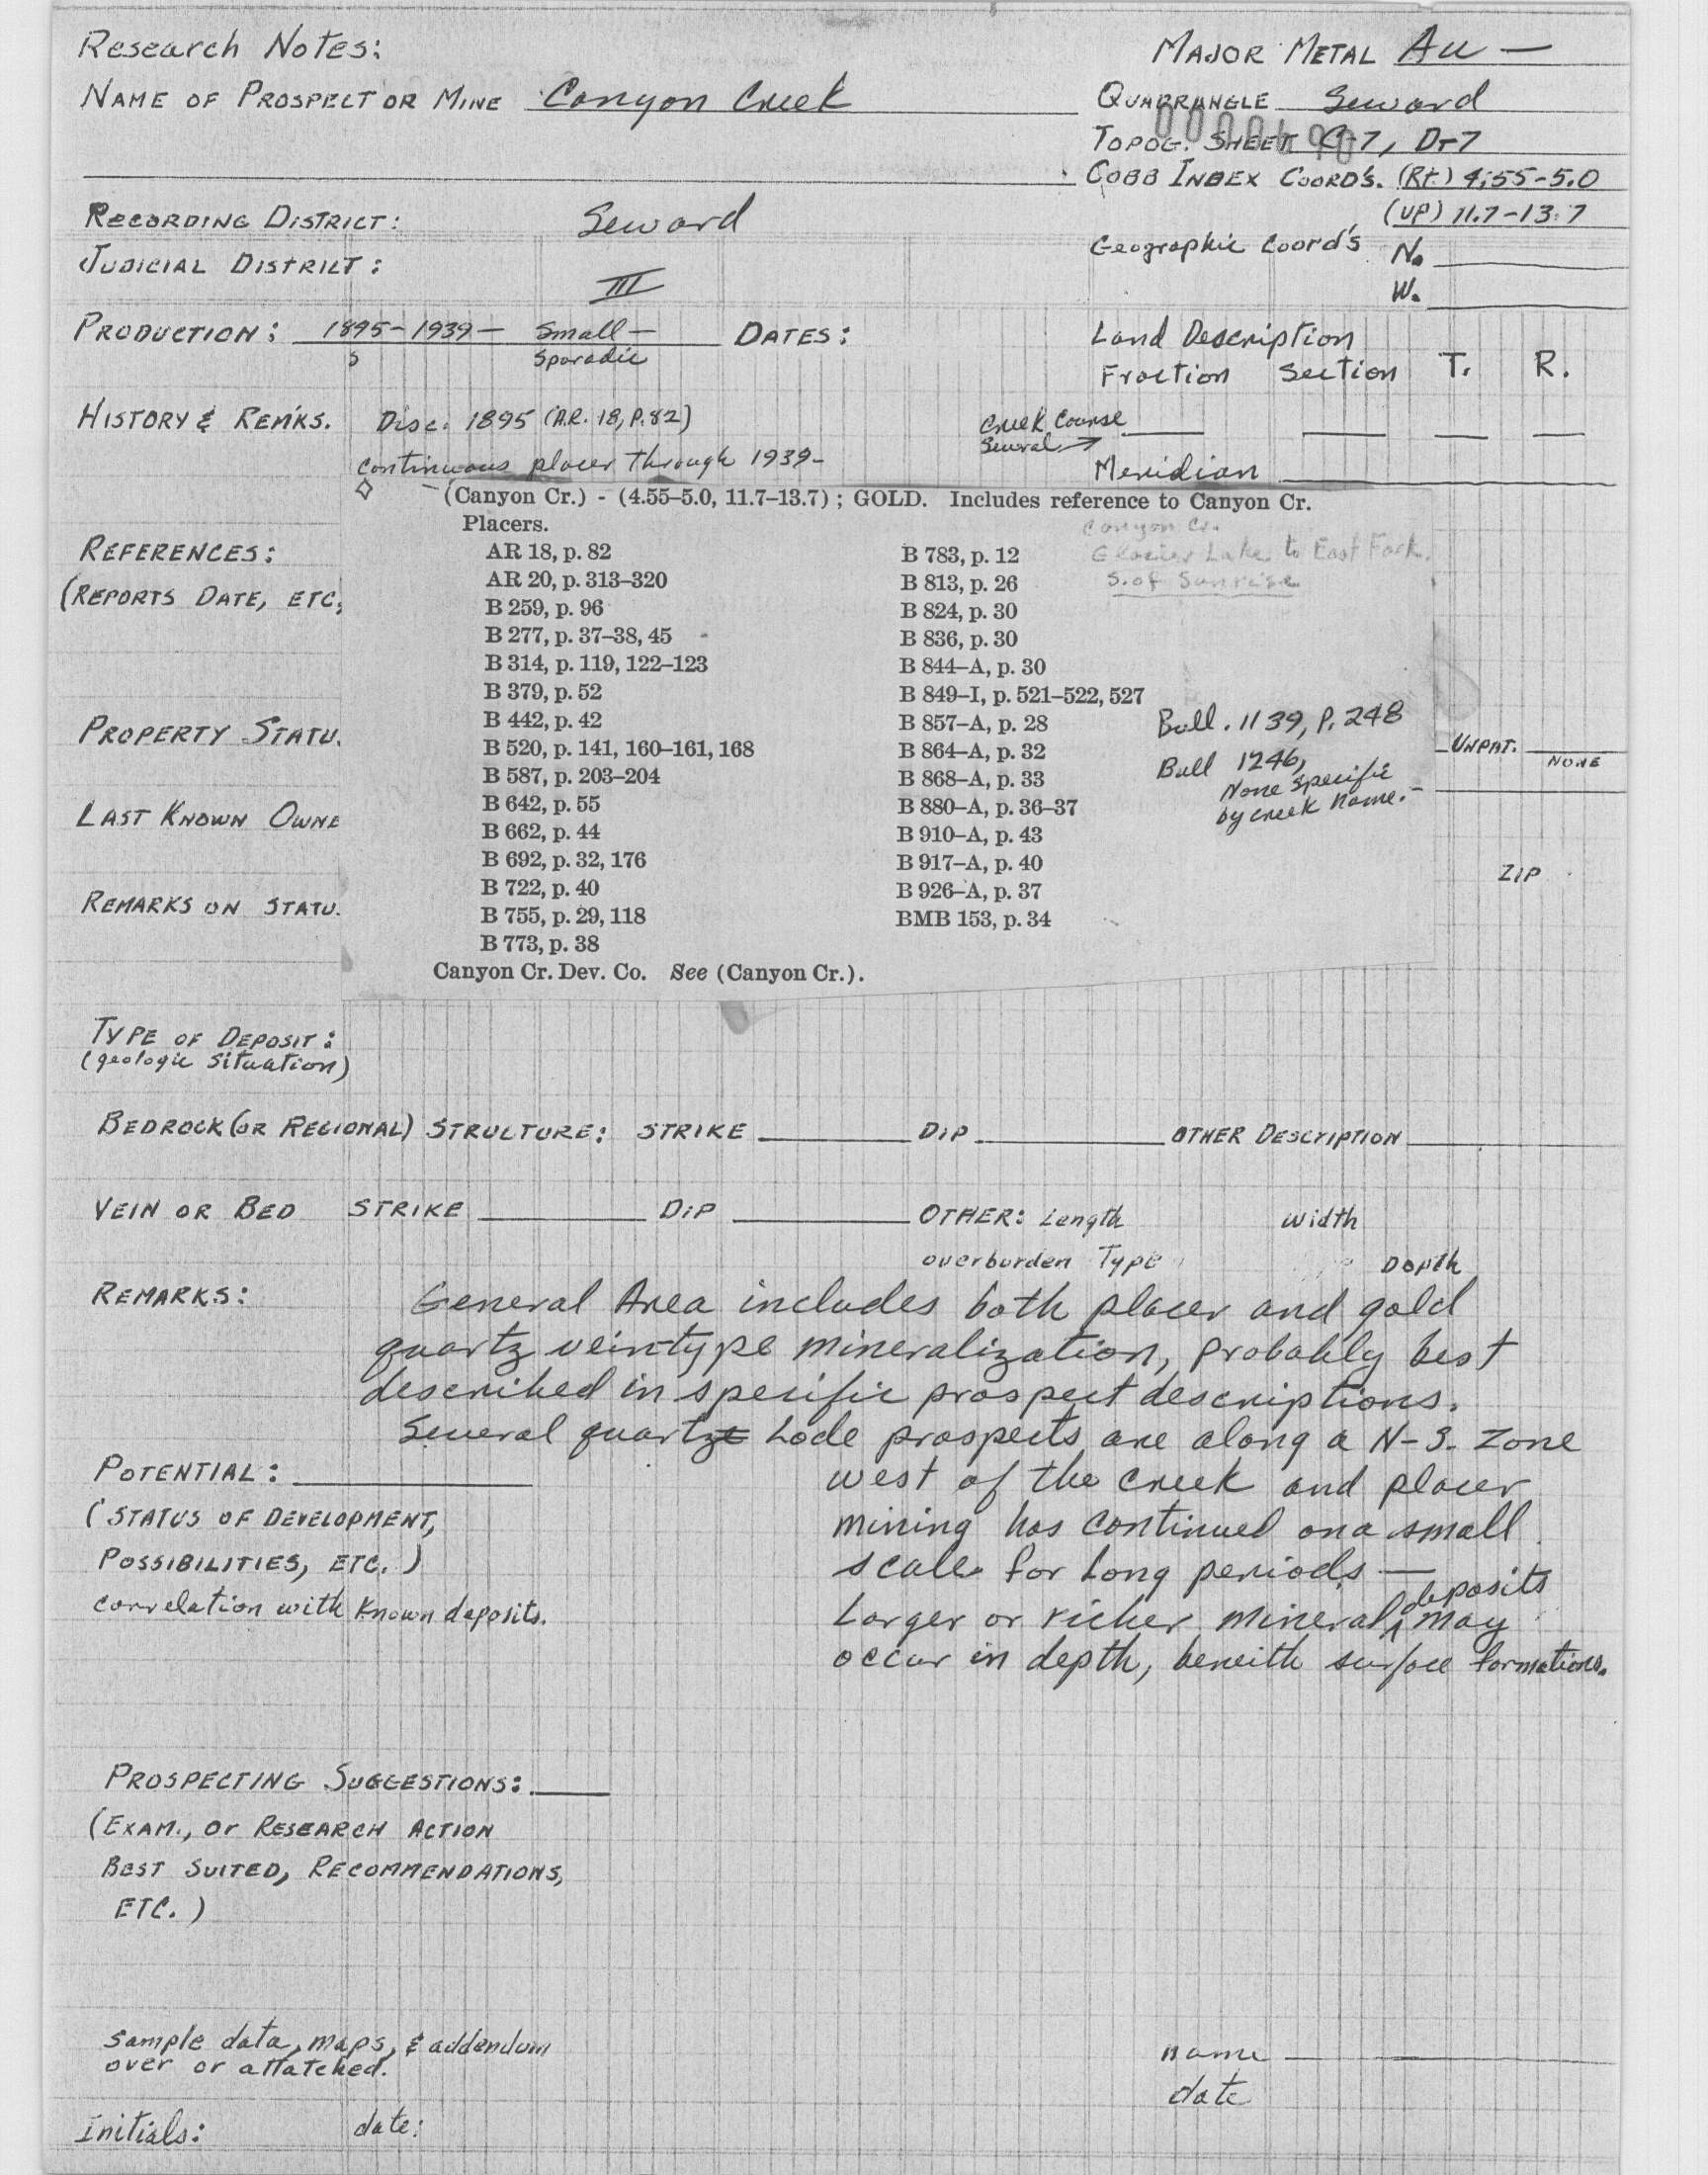 Research Notes:
MAJOR METAL Au —
NAME OF PROSPECT OR MINE Canyon Creek
QUADRANGLE Seward
TOPOG. SHEET C-7, D-7
COBB INDEX COORD'S. (Rt.) 4.55-5.0
(UP) 11.7-13.7
RECORDING DISTRICT: Seward
Geographic Coord's N.
W.
JUDICIAL DISTRICT: III
PRODUCTION: 1895-1939- Small-
Sporadic
DATES:
Land Description
Fraction Section T. R.
HISTORY & REM'KS. Disc. 1895 (A.R. 18, P. 82)
continuous placer through 1939-
Creek Course
Several →
Meridian
(Canyon Cr.) - (4.55–5.0, 11.7–13.7) ; GOLD. Includes reference to Canyon Cr.
Placers.
Canyon Cr.
Glacier Lake to East Fork.
S. of Sunrise
REFERENCES:
(REPORTS DATE, ETC,
AR 18, p. 82
AR 20, p. 313–320
B 259, p. 96
B 277, p. 37–38, 45
B 314, p. 119, 122–123
B 379, p. 52
B 442, p. 42
B 520, p. 141, 160–161, 168
B 587, p. 203–204
B 642, p. 55
B 662, p. 44
B 692, p. 32, 176
B 722, p. 40
B 755, p. 29, 118
B 773, p. 38
B 783, p. 12
B 813, p. 26
B 824, p. 30
B 836, p. 30
B 844–A, p. 30
B 849–I, p. 521–522, 527
B 857–A, p. 28
B 864–A, p. 32
B 868–A, p. 33
B 880–A, p. 36–37
B 910–A, p. 43
B 917–A, p. 40
B 926–A, p. 37
BMB 153, p. 34
Bull. 1139, P. 248
Bull 1246,
None specific
by creek name.-
Canyon Cr. Dev. Co. See (Canyon Cr.).
PROPERTY STATU.
UNPAT.
NONE
LAST KNOWN OWNE
ZIP
REMARKS ON STATU.
TYPE OF DEPOSIT:
(geologic situation)
BEDROCK (OR REGIONAL) STRUCTURE: STRIKE DIP OTHER DESCRIPTION
VEIN OR BED STRIKE DIP OTHER: Length width
overburden Type Depth
REMARKS: General Area includes both placer and gold
quartz vein-type mineralization, probably best
described in specific prospect descriptions.
Several quartz Lode prospects are along a N-S. Zone
west of the creek and placer
mining has continued on a small
scale for long periods —
Larger or richer mineral deposits may
occur in depth, beneith surface formations.
POTENTIAL:
(STATUS OF DEVELOPMENT,
POSSIBILITIES, ETC.)
correlation with known deposits.
PROSPECTING SUGGESTIONS:
(EXAM., or RESEARCH ACTION
BEST SUITED, RECOMMENDATIONS,
ETC.)
sample data, maps, & addendum
over or attatched.
name
date
Initials: date: